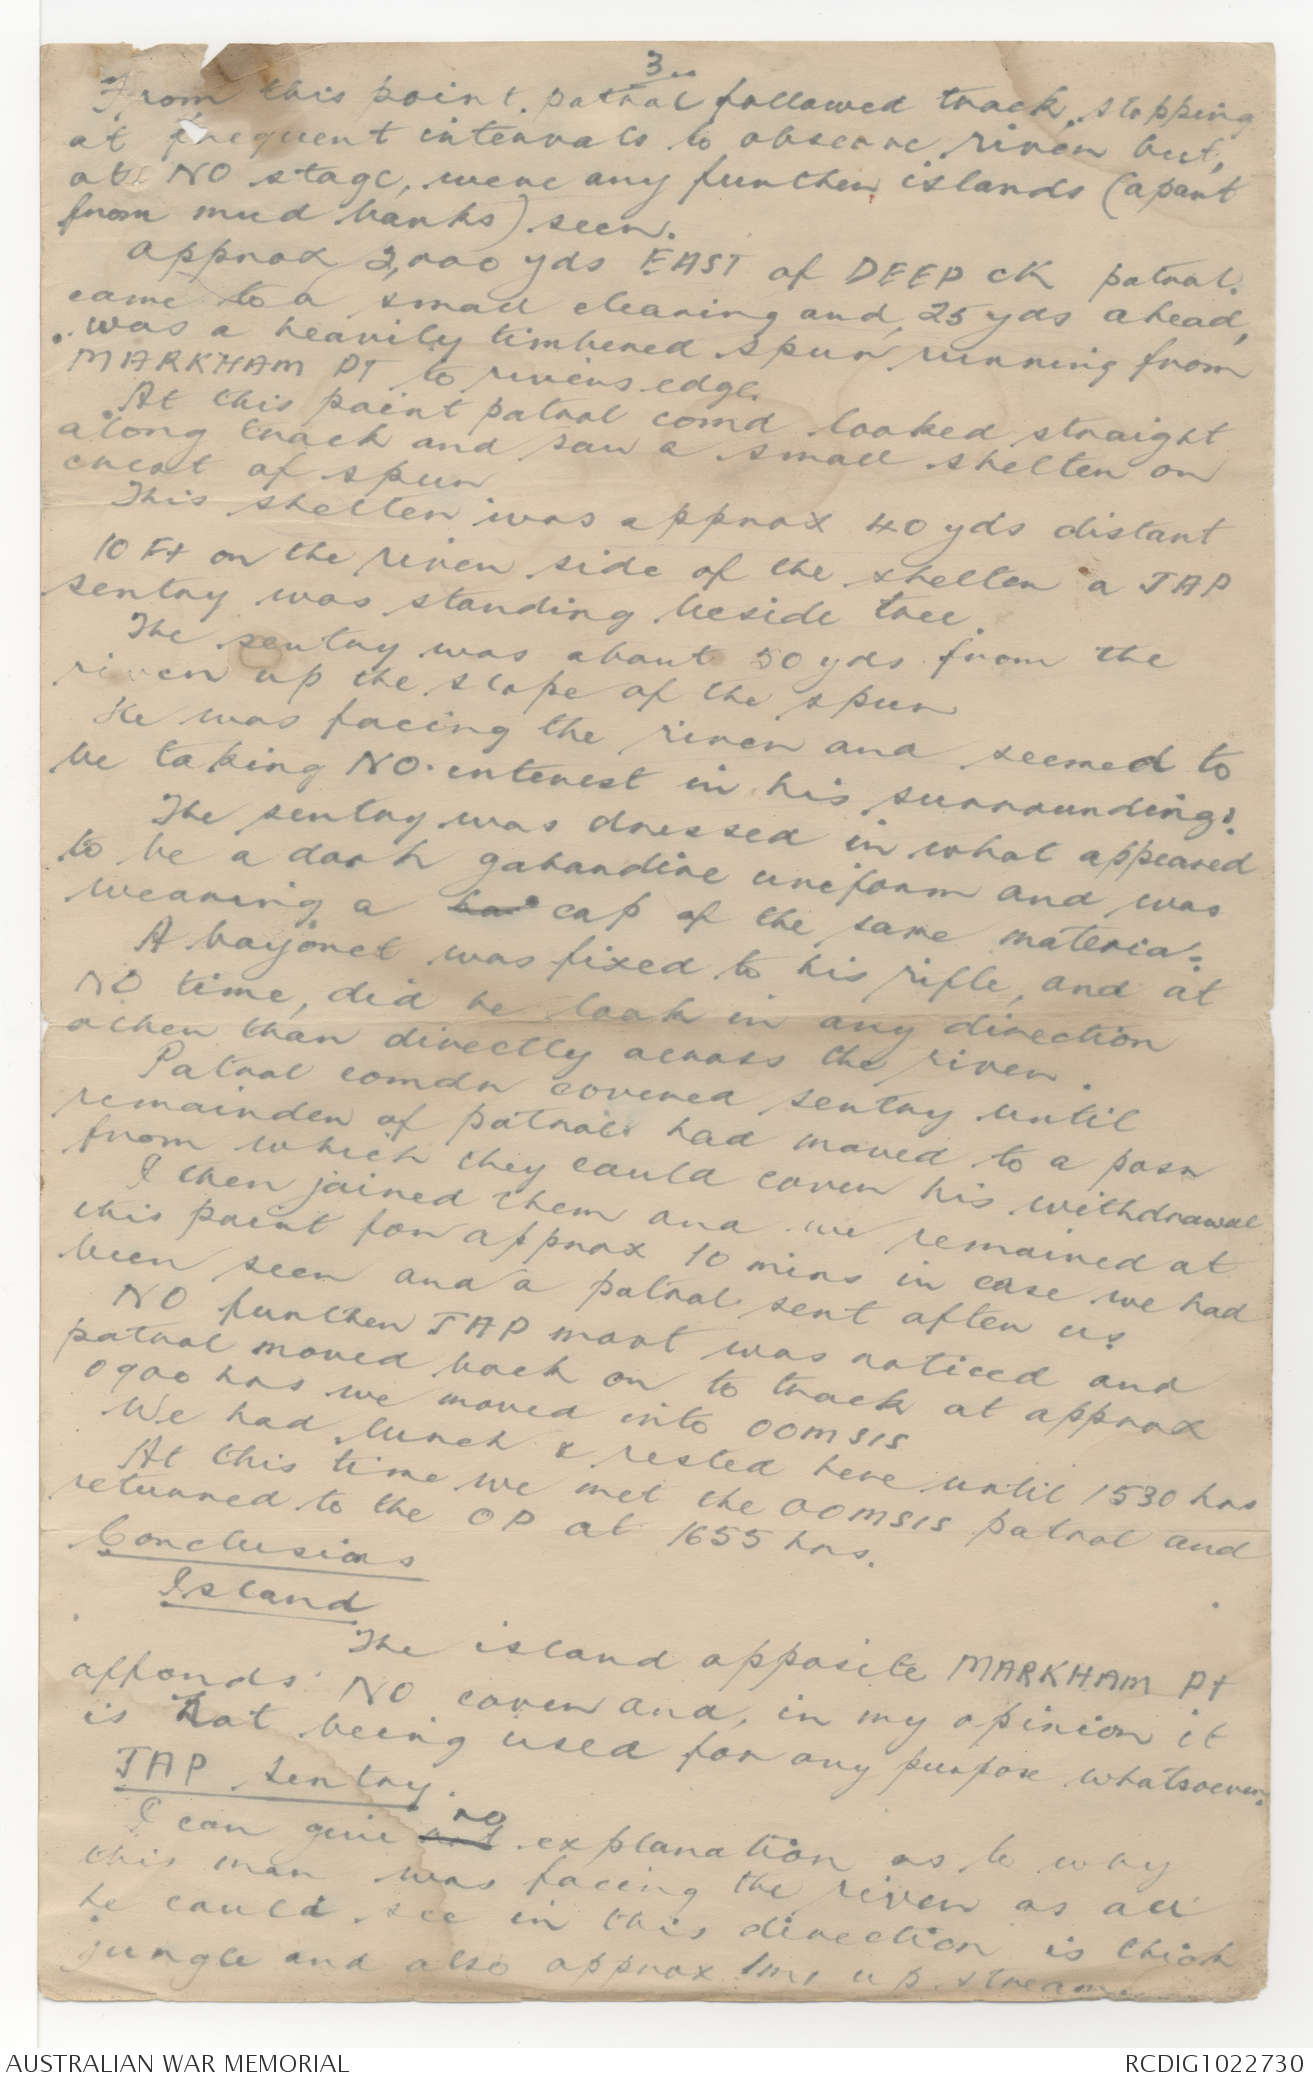 3.
From this point, patrol followed track, stopping
at frequent intervals to observe river but,
at NO stage, were any further islands (apart
from mud banks) seen.
Approx 2,000 yds EAST of DEEP CK patrol
came to a small clearing and, 25 yds ahead,
was a heavily timbered spur running from
MARKHAM PT to rivers edge.
At this point patrol comd looked straight
along track and saw a small shelter on
crest of spur
This shelter was approx 40 yds distant
10 Ft on the river side of the shelter a JAP
sentry was standing beside tree.
The sentry was about 50 yds from the
river up the slope of the spur
He was facing the river and seemed to
be taking NO interest in his surroundings.
The sentry was dressed in what appeared
to be a dark gabardine uniform and was
wearing a cap of the same material.
A bayonet was fixed to his rifle, and at
NO time, did he look in any direction
other than directly across the river.
Patrol comdr covered sentry until
remainder of patrol had moved to a posn
from which they could cover his withdrawal
I then joined them and we remained at
this point for approx 10 mins in case we had
been seen and a patrol sent after us
NO further JAP movt was noticed and
patrol moved back on to track at approx
0900 hrs we moved into OOMSIS
We had lunch & rested here until 1530 hrs
At this time we met the OOMSIS patrol and
returned to the OP at 1655 hrs.
Conclusions
Island
The island opposite MARKHAM Pt
affords NO cover and, in my opinion it
is not being used for any purpose whatsoever.
JAP Sentry.
I can give no explanation as to why
this man was facing the river as all
he could see in this direction is thick
jungle and also approx 1ml up stream
AUSTRALIAN WAR MEMORIAL
RCDIG1022730